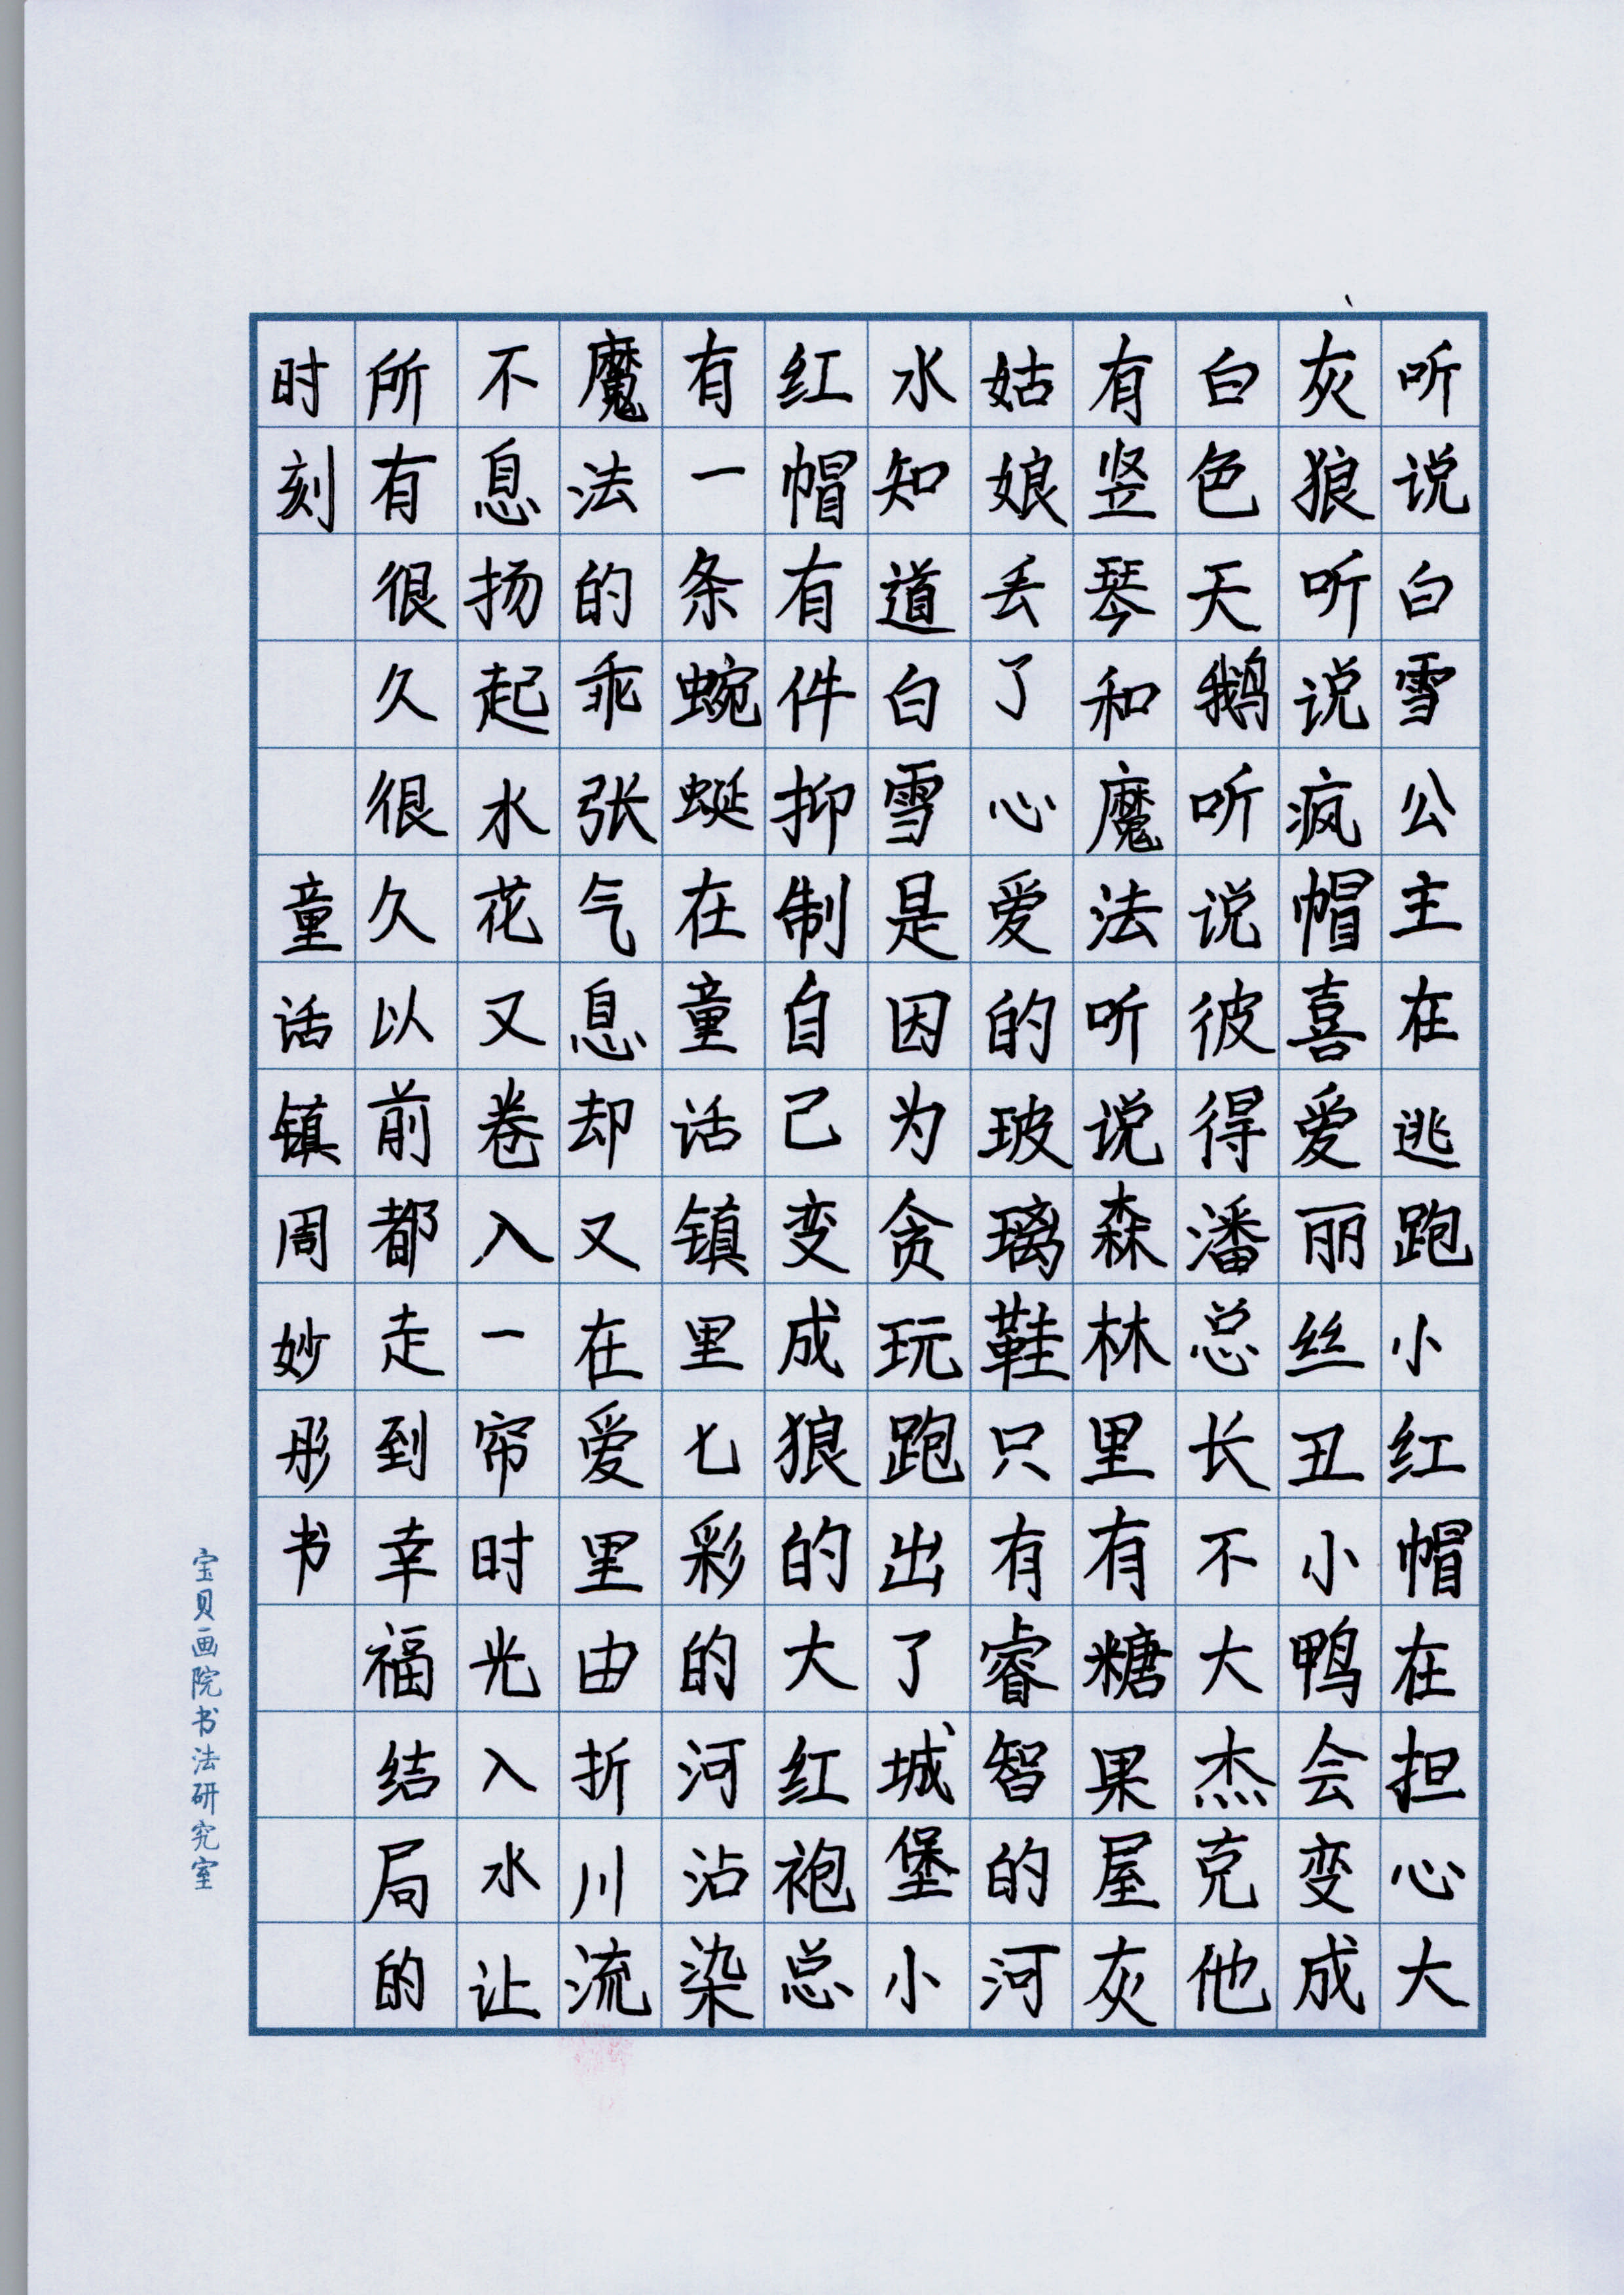 听说白雪公主在逃跑小红帽在担心大
灰狼听说疯帽喜爱丽丝丑小鸭会变成
白色天鹅听说彼得潘总长不大杰克他
有竖琴和魔法听说森林里有糖果屋灰
姑娘丢了心爱的玻璃鞋只有睿智的河
水知道白雪是因为贪玩跑出了城堡小
红帽有件抑制自己变成狼的大红袍总
有一条蜿蜒在童话镇里七彩的河沾染
魔法的乖张气息却又在爱里由折川流
不息扬起水花又卷入一帘时光入水让
所有很久很久以前都走到幸福结局的
时刻
童话镇周妙彤书
宝贝画院书法研究室